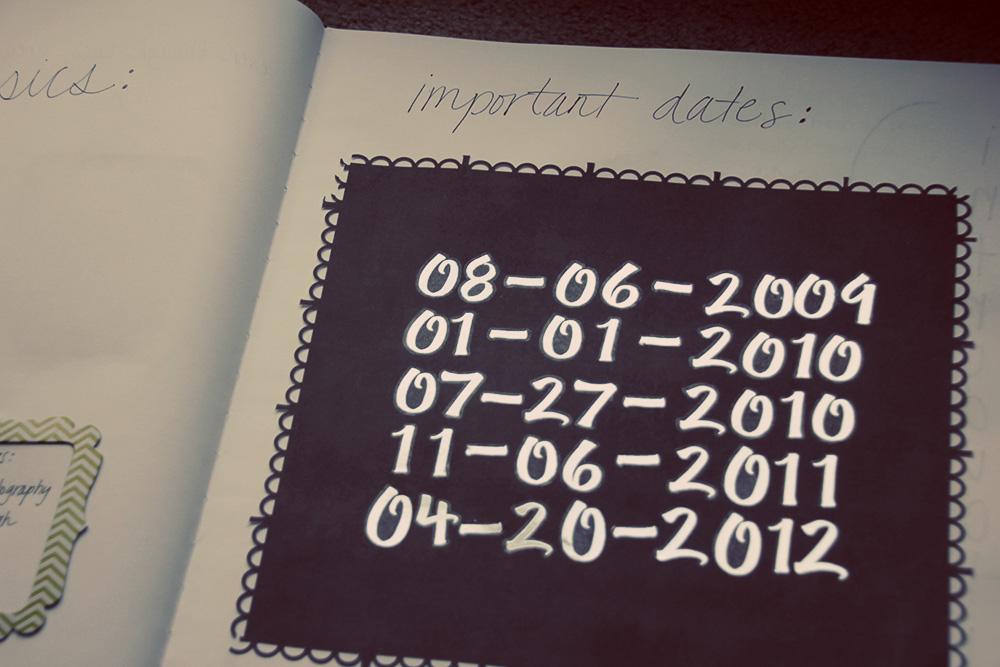 important dates:
08-06-2009
01-01-2010
07-27-2010
11-06-2011
04-20-2012